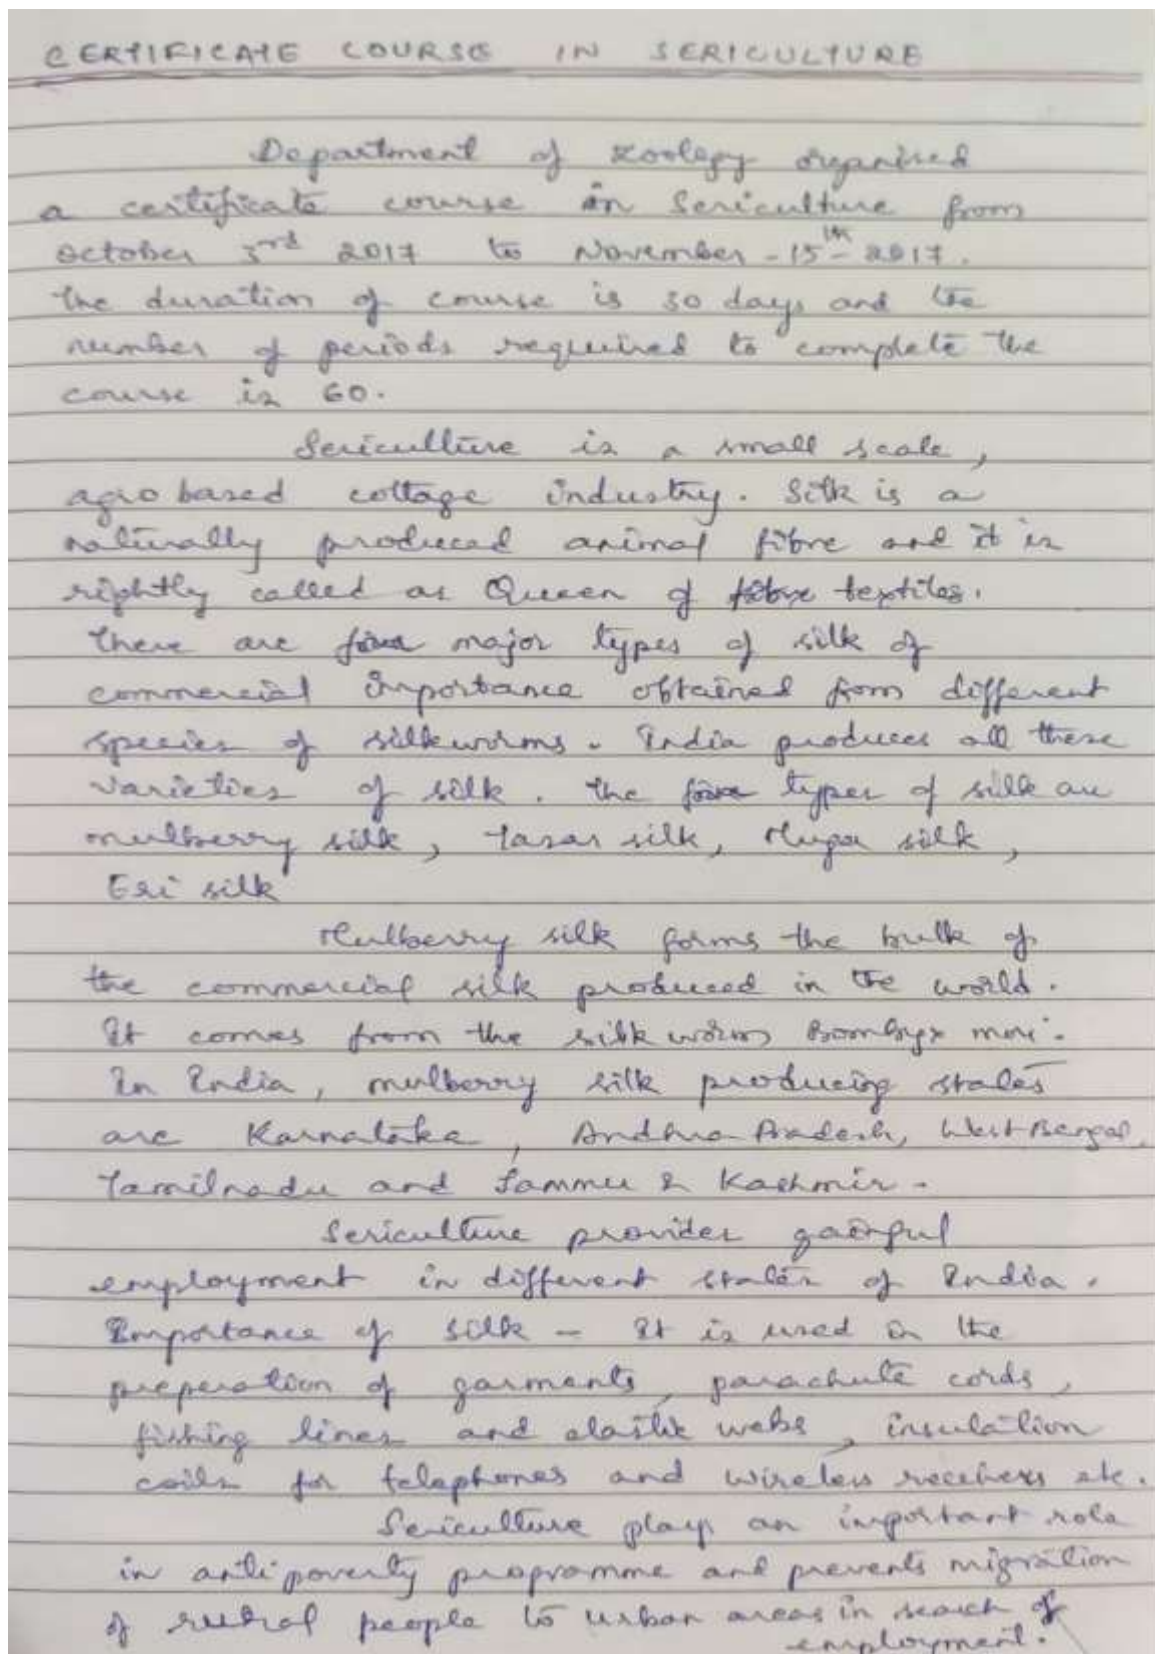 CERTIFICATE COURSE IN SERICULTURE
Department of Zoology organised
a certificate course in Sericulture from
October 3rd 2017 to November - 15th - 2017.
The duration of course is 30 days and the
number of periods required to complete the
course is 60.
Sericulture is a small scale,
agro based cottage industry. Silk is a
naturally produced animal fibre and it is
rightly called as Queen of textiles.
There are four major types of silk of
commercial importance obtained from different
species of silkworms. India produces all these
varieties of silk. The four types of silk are
mulberry silk, Tasar silk, Muga silk,
Eri silk
Mulberry silk forms the bulk of
the commercial silk produced in the world.
It comes from the silk worm Bombyx mori.
In India, mulberry silk producing states
are Karnataka, Andhra Pradesh, West Bengal,
Tamilnadu and Jammu & Kashmir.
Sericulture provides gainful
employment in different states of India.
Importance of silk - It is used in the
preperation of garments, parachute cords,
fishing lines and elastic webs, insulation
coils for telephones and wireless receivers etc.
Sericulture plays an important role
in anti poverty programme and prevents migration
of rural people to urban areas in search of
employment.